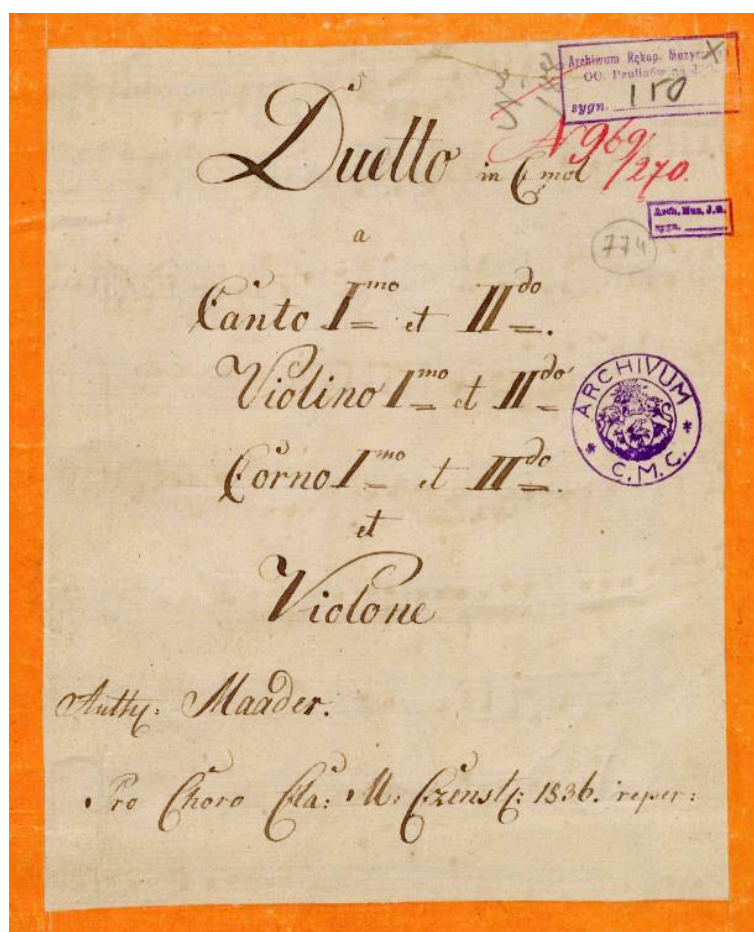 Archiwum Rękop. Muzycz
OO. Paulinów na J.G.
sygn. 150
Duetto in C mol
N 969/270.
Arch. Muz. J.G.
sygn.
774
a
Canto Imo et IIdo.
Violino Imo et IIdo
ARCHIVUM * C.M.C. *
Corno Imo et IIdo.
et
Violone
Auth: Maader.
Pro Choro Cla: M: Czenst: 1836. reper: